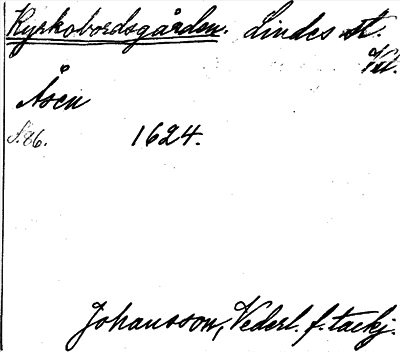 Kyrkobordsgården. Lindes st.
Vtl.
Åsen
S. 86. 1624.
Johansson, Vederl. f. tackj.